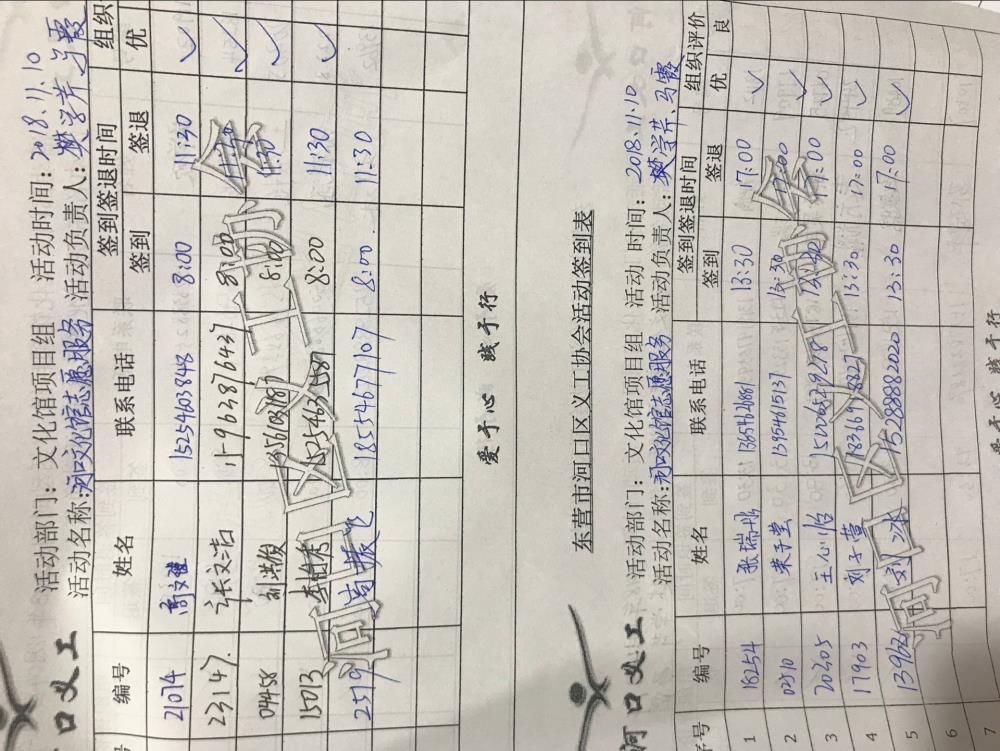 口义工
活动部门：文化馆项目组 活动时间：2018.11.10
活动名称：河口文化馆志愿服务 活动负责人：樊学芹 马霞
编号 姓名 联系电话 签到签退时间 组织
签到 签退 优
21074 高文雅 15254603848 8:00 11:30 ✓
23147 张文洁 8:00 ✓
04458 8:00 ✓
15013 8:00 11:30 ✓
2519 高振飞 18554677107 8:00 11:30
河口区义工协会
爱于心 践于行
东营市河口区义工协会活动签到表
河口义工
活动部门：文化馆项目组 活动 时间：2018.11.10
活动名称：河口文化馆志愿服务 活动负责人：樊学芹、马霞
序号 编号 姓名 联系电话 签到签退时间 组织评价
签到 签退 优 良
1 18254 张瑞彤 13:30 17:00 ✓
2 0210 13954615137 13:30 17:00 ✓
3 20305 王心怡 13:30 17:00 ✓
4 17903 刘子萱 13:30 17:00 ✓
5 刘冰 15288882020 13:30 17:00 ✓
6
7
河口区义工协会
爱于心 践于行